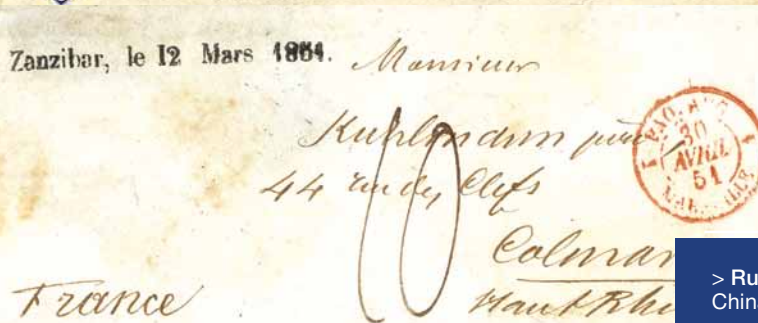 Zanzibar, le 12 Mars 1861.
Monsieur
Kuhlmann père
44 rue des Clefs
Colmar
Haut Rhi
France
10
PAQ. ANG.
30
AVRIL
61
MARSEILLE
> Ru
China